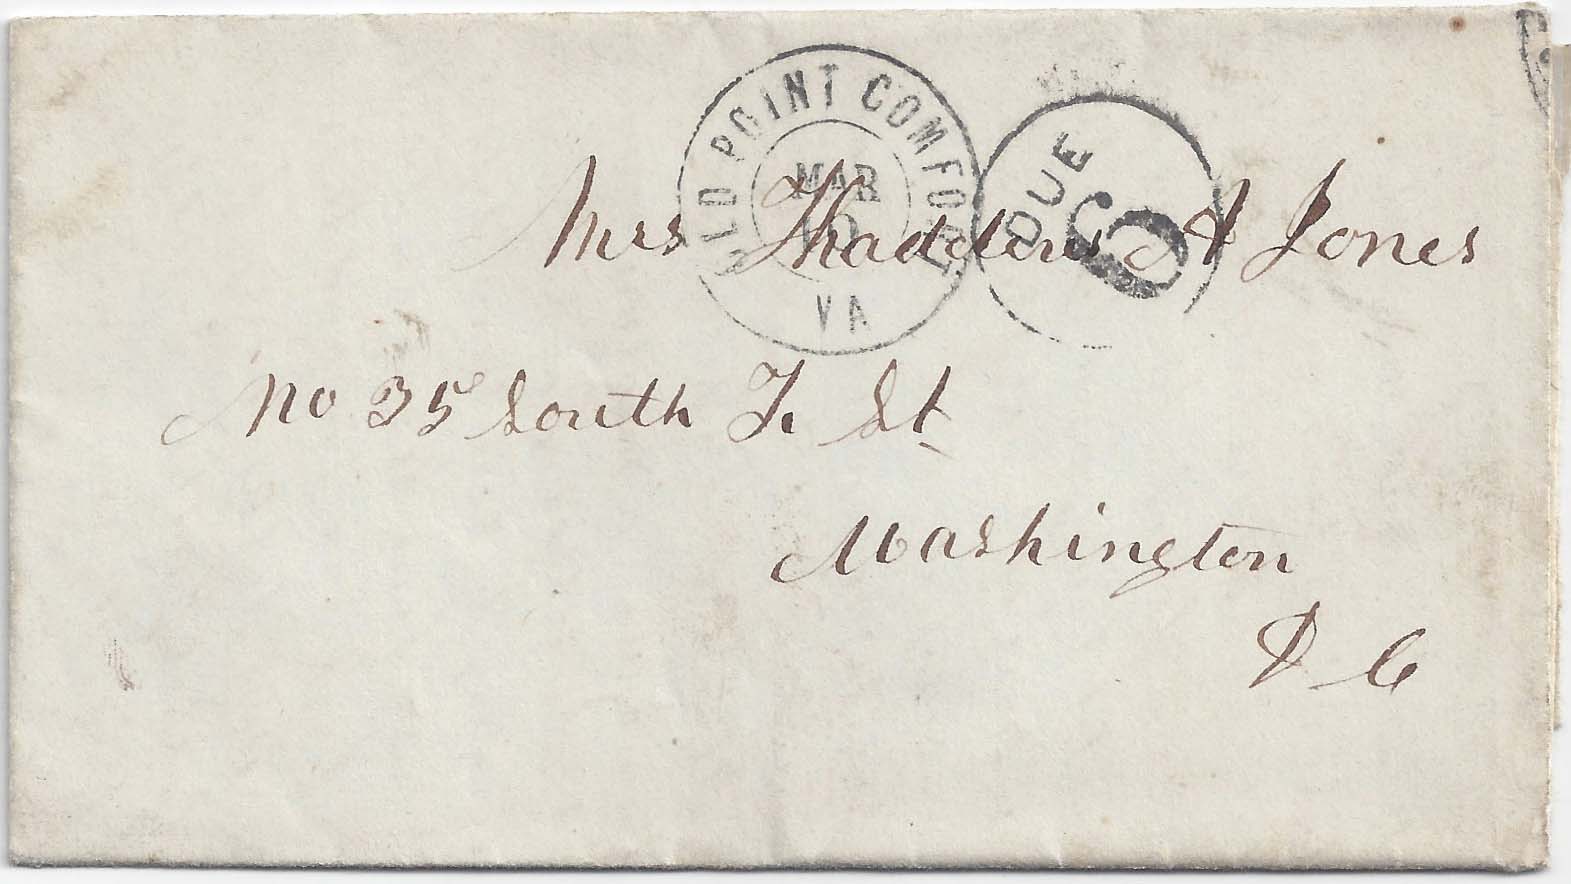 OLD POINT COMFORT
MAR
10
VA
DUE 6
Mrs Thaddeus A Jones
No 35 South F St
Washington
D C